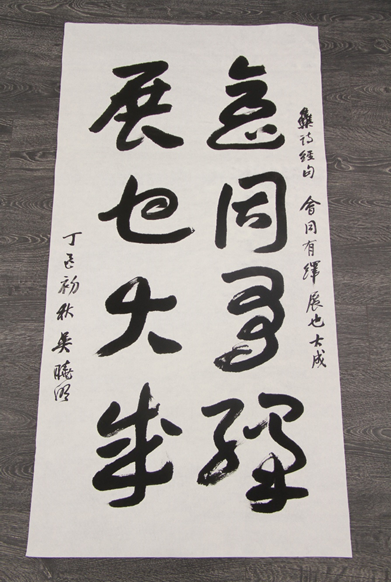 會同有繹
展也大成
集詩經句 會同有繹 展也大成
丁酉初秋 吳曉明